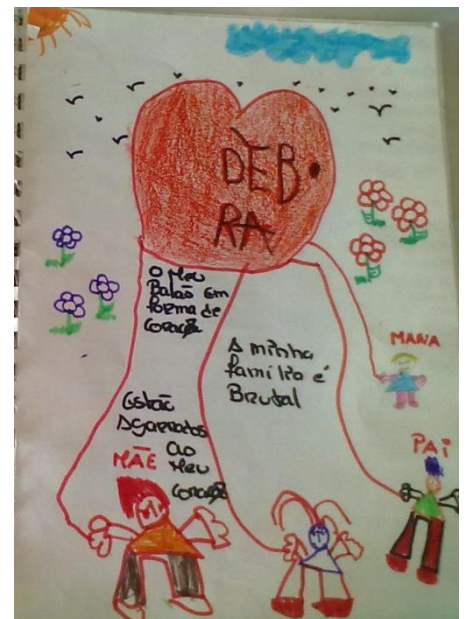 DÈB.
RA
O Meu
Balão Em
forma de
coração
A minha
família é
Brutal
Estão
Agarrados
ao
Meu
coração
MANA
PAI
MÃE